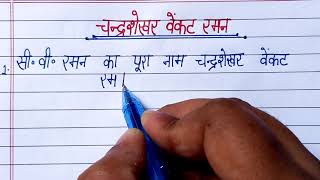 चन्द्रशेखर वेंकट रमन
1. सी॰ वी॰ रमन का पूरा नाम चन्द्रशेखर वेंकट
रम